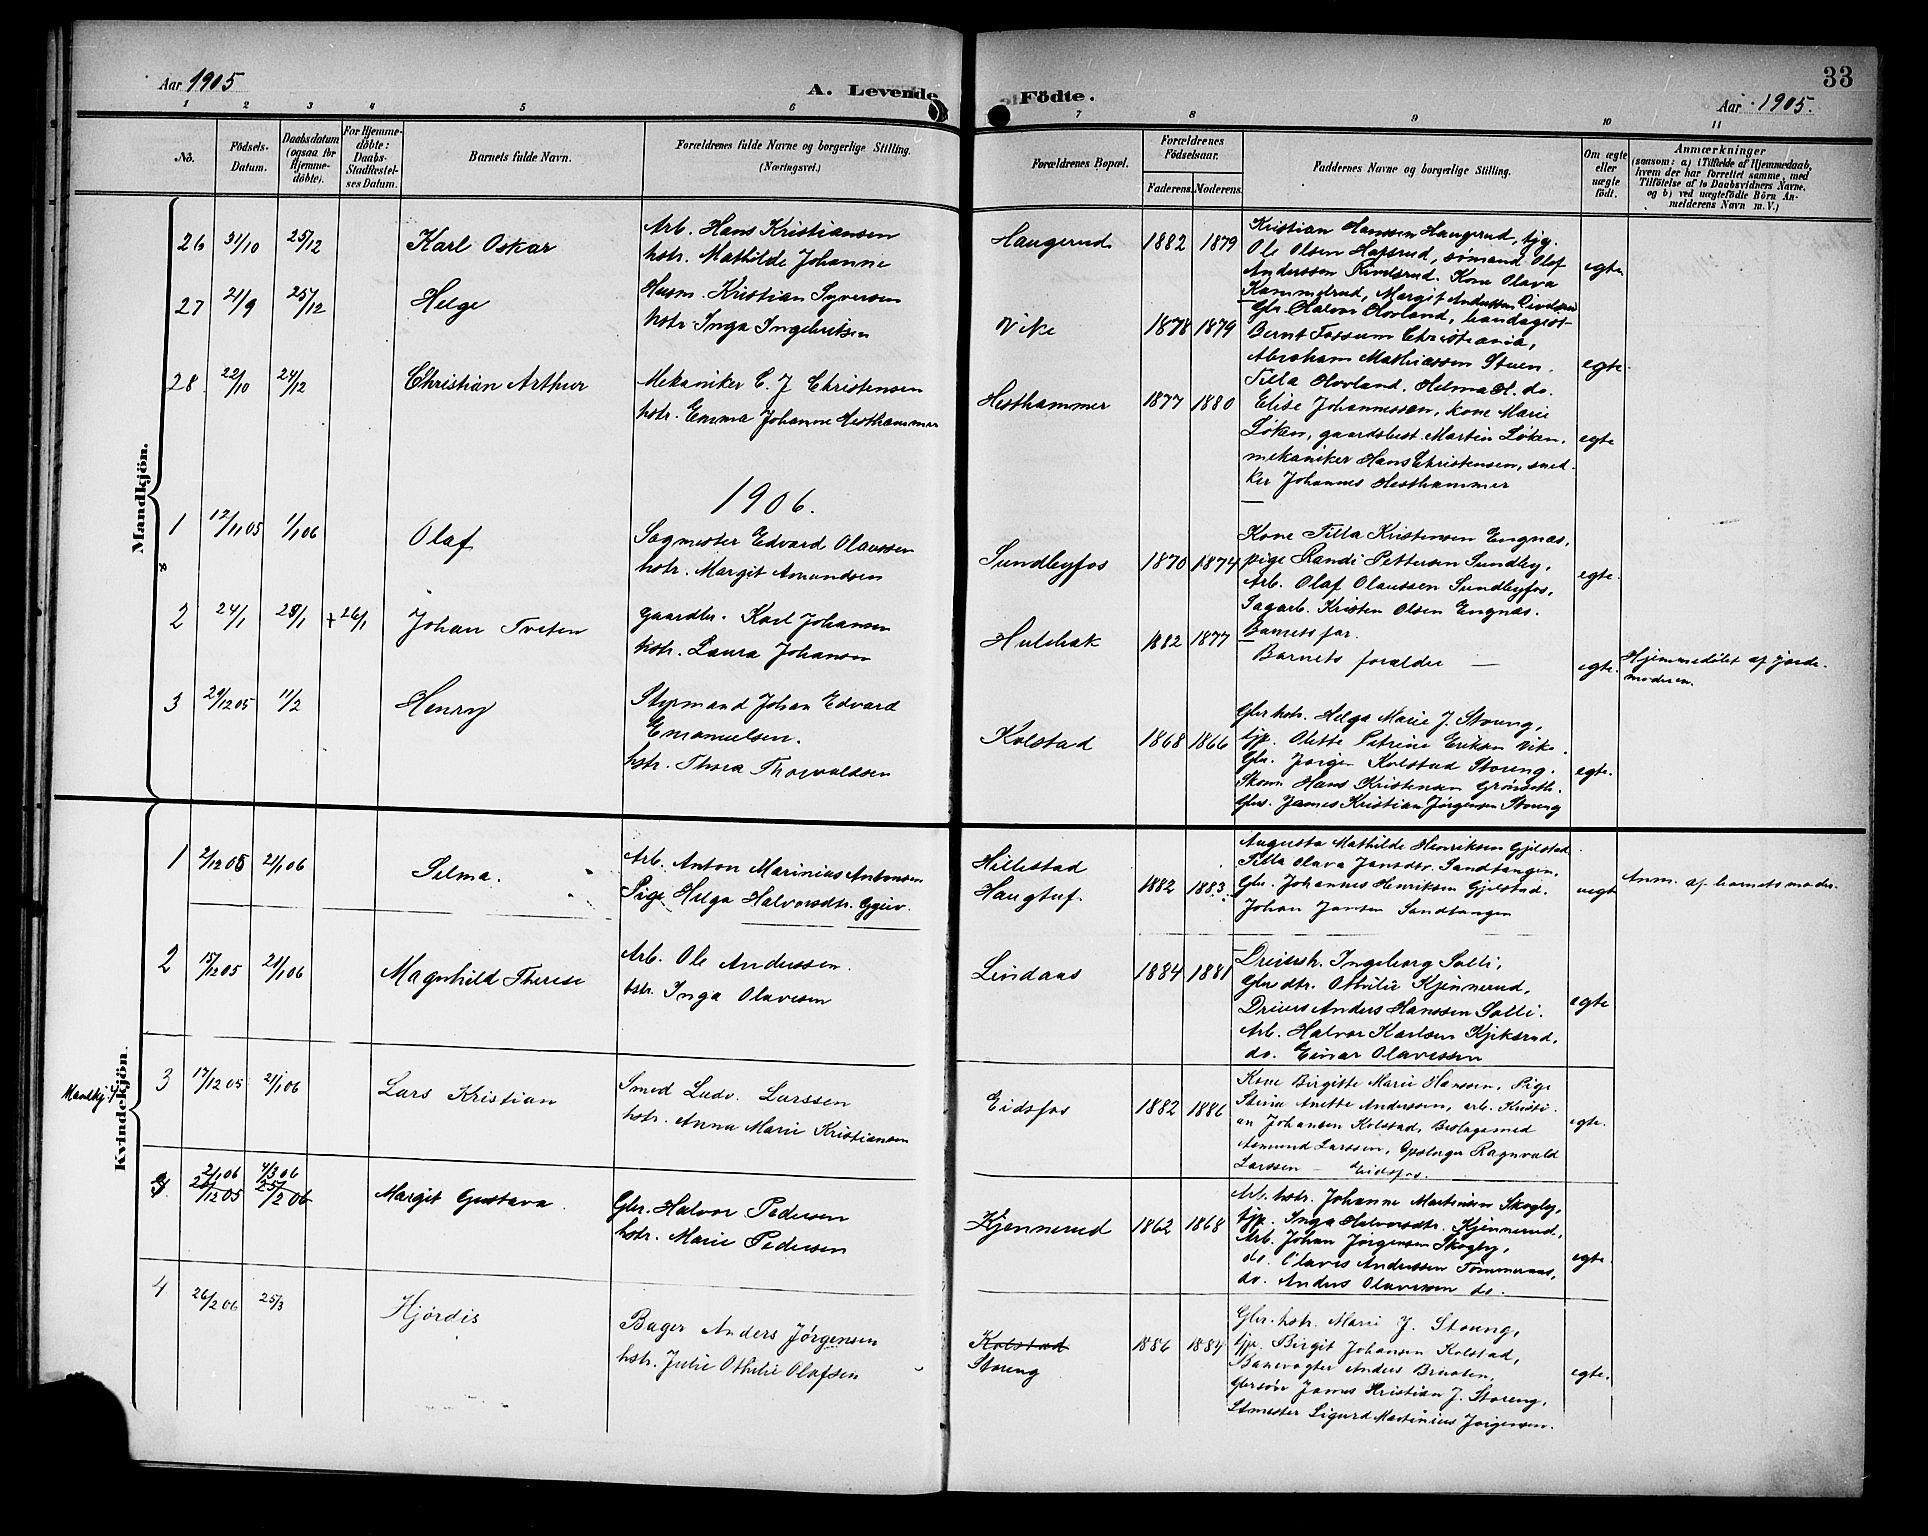 Aar 1905
A. Levende Födte.
33
Aar 1905.
1 2 3 4 5 6 7 8 9 10 11
No.
Födsels-
Datum.
Daabsdatum
(ogsaa for
Hjemme-
döbte).
For Hjemme-
döbte:
Daabs-
Stadfæstel-
ses Datum.
Barnets fulde Navn.
Forældrenes fulde Navne og borgerlige Stilling.
(Næringsvei.)
Forældrenes Bopæl.
Forældrenes
Födselsaar.
Faderens. Moderens.
Faddernes Navne og borgerlige Stilling.
Om ægte
eller
uægte
födt.
Anmærkninger
(saasom: a) (Tilfælde af Hjemmedaab,
hvem der har forrettet samme, med
Tilföielse af to Daabsvidners Navne.
og b) ved uægtefödte Börn An-
melderens Navn m. V.)
Mandkjön.
26 31/10 25/12 Karl Oskar
Arb. Hans Kristiansen
hstr. Mathilde Johanne
Haugerud 1882 1879
Kristian Hansen Haugerud, tjg.
Ole Olsen Hapsrud, sømand Olaf
Anderssen . Kone Olava
Kammelrud, Margit Anderssen
egte
27 21/9 25/12 Helge
Husm. Kristian Syversen
hstr. Inga Ingebriktsen
Vike 1878 1879
Gbr. Halvor Hovland, bandagist
Bernt Fossum Christiania,
Abraham Mathiassen Stuen.
Tilla Hovland. Helma H. do.
egte.
28 22/10 24/12 Christian Arthur
Mekaniker C. J Christensen
hstr. Emma Johanne Hesthammer
Hesthammer 1877 1880
Elise Johannessen, kone Marie
Løken, gaardsbest. Martin Løken.
mekaniker Hans Christensen, sned-
ker Johannes Hesthammer
egte
1906.
1 12/11 05 1/1 06 Olaf
Sagmester Edvard Olaussen
hstr. Margit Amundsen
Sundbyfos 1870 1874
Kone Tilla Kristensen Engnæs,
pige Randi Pettersen Sundby,
Arb. Olaf Olaussen Sundbyfos,
Sagarb. Kristen Olsen Engnæs.
Barnets far.
egte.
2 24/1 28/1 + 26/1 Johan Tveten
Gaardbr. Karl Johansen
hstr. Laura Johansen
Hulebak 1882 1877
Barnets foraldre —
egte.
Hjemmedøbt af jorde-
moderen.
3 29/12 05 11/2 Henry
Styrmand Johan Edvard
Emanuelsen.
hstr. Thora Thorvaldsen
Kolstad 1868 1866
Gbr hstr. Helga Marie J. Storeng,
tjp. Olette Petrine Eriksen Vike.
Gbr. Jørgen Kolstad Storeng.
Skom. Hans Kristensen Grönseth.
Gbrs. James Kristian Jørgensen Storeng
egte.
Kvindekjön.
1 2/12 05 21/1 06 Selma.
Arb. Anton Marinius Antonsen
Pige Helga Halvorsdtr.
Hillestad
Haugtuf. 1882 1883
Augusta Mathilde Henriksen Gjelstad
Tilla Olava Jansdtr. Sandtangen,
Gbr. Johannes Henriksen Gjelstad.
Johan Jansen Sandtangen
uegt
Anm. af barnets moder.
2 15/12 05 21/1 06 Magnhild Therese
Arb. Ole Anderssen.
hstr. Inga Olavesen
Lindaas 1884 1881
Dreiersh. Ingeborg Solli,
Gbrsdtr. Othilie Kjennerud,
Dreiers Anders Hanssen Solli.
Arb. Halvor Karlsen Kjiksrud,
do. Einar Olavessen
egte
Mandkj.
3 17/12 05 21/1 06 Lars Kristian
Smed Ludv. Larssen
hstr. Anna Marie Kristiansen
Eidsfos 1882 1886
Kone Birgitte Marie Hanssen, Pige
Stina Anette Anderssen, arb. Kristi-
an Johansen Kolstad, Beslagsmed
Asmund Larssen, Ragnvald
Larssen — Eidsfos.
egte.
3 2/1 06 27/12 05 4/3 06 25/2 06 Margit Gustava.
Gbr. Halvor Pedersen
hstr. Marie Pedersen
Kjennerud 1862 1868
Arb. hstr. Johanne Martinsen Skogby,
tjp. Inga Halvorsdtr. Kjennerud,
Arb. Johan Jørgensen Skogby,
do. Olaves Anderssen Tømmeraas,
do. Anders Olavessen do.
egte.
4 26/2 06 25/3 Hjördis
Bager Anders Jørgensen
hstr. Julie Othilie Olafsen
Kolstad
Storeng 1886 1884
Gbr. hstr. Marie J. Storeng,
tjp. Birgit Johansen Kolstad,
Banevogter Anders Braaten,
Gbrsøn James Kristian J. Storeng,
Stmester Sigurd Martinius Jørgensen.
egte.